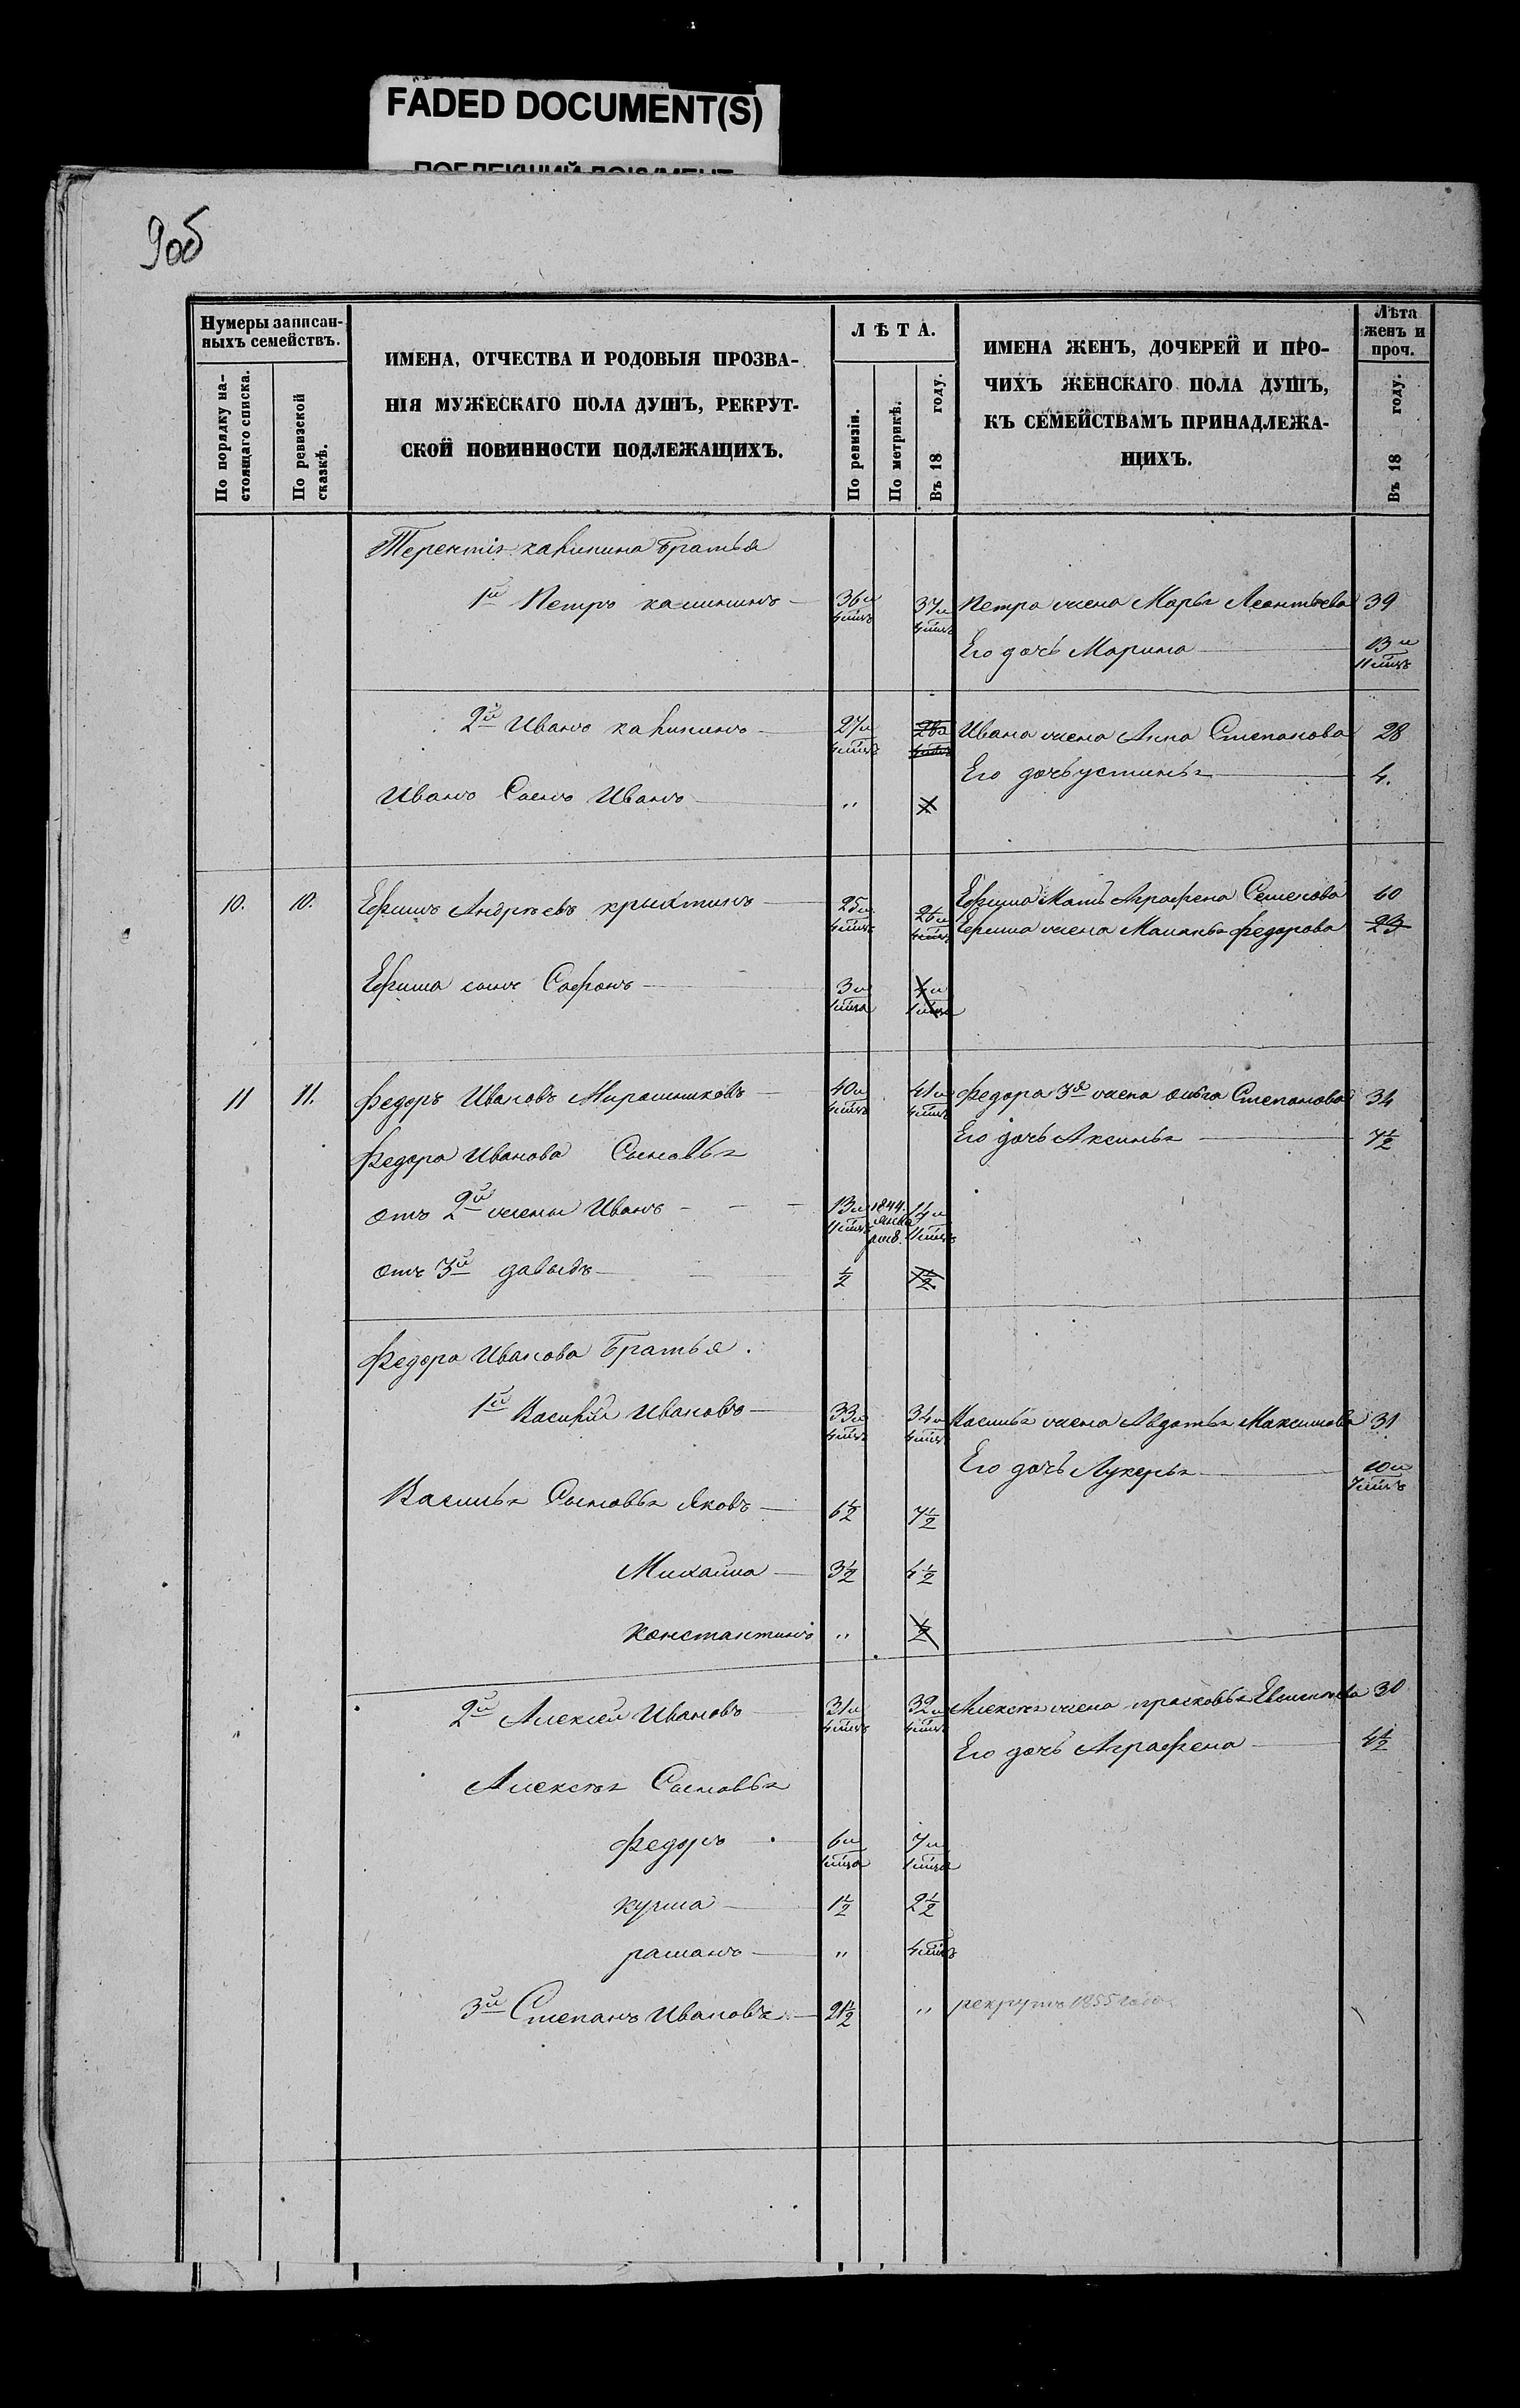 FADED DOCUMENT(S)
ПОБЛЕКШИЙ ДОКУМЕНТ
9об
Нумеры записан-
ныхъ семействъ.
По порядку на-
стоящаго списка.
По ревизской
сказкѣ.
ИМЕНА, ОТЧЕСТВА И РОДОВЫЯ ПРОЗВА-
НІЯ МУЖЕСКАГО ПОЛА ДУШЪ, РЕКРУТ-
СКОЙ ПОВИННОСТИ ПОДЛЕЖАЩИХЪ.
ЛѢТА.
По ревизіи.
По метрикѣ.
Въ 18 году.
ИМЕНА ЖЕНЪ, ДОЧЕРЕЙ И ПРО-
ЧИХЪ ЖЕНСКАГО ПОЛА ДУШЪ,
КЪ СЕМЕЙСТВАМЪ ПРИНАДЛЕЖА-
ЩИХЪ.
Лѣта
женъ и
проч.
Въ 18 году.
Терентія калинина Братья
1й Петръ калининъ 36и 4мцъ 37и 4мцъ Петра жена Марья Леонтьева 39
Его дочь Марина 13и 11мцъ
2й Иванъ калининъ 27и 4мцъ 28и 4мцъ Ивана жена Анна Степанова 28
Его дочь устинья 4.
Иванъ Сынъ Иванъ "
10. 10. Ефимъ Андрѣевъ 25и 4мцъ 26и 4мцъ Ефима Мать Аграфена Семенова 60
Ефима жена Маланья федорова 23
Ефима сынъ Софонъ 3и 1мца 4и 1мца
11 11. федоръ Ивановъ Мирошниковъ 40и 4мцъ 41и 4мцъ Федора 3я жена ольга Степанова 34
Его дочь Аксинья 7½
Федора Иванова Сыновья
отъ 2й жены Иванъ 13и 11мцъ 1844. 14и 11мцъ
отъ 3й давыдъ ½ 1½
Федора Иванова Братья.
1й Василій Ивановъ 33и 4мцъ 34и 4мцъ Василья жена Авдотья Максимова 31
Его дочь Лукерья 10и 7мцъ
Василья Сыновья Яковъ 6½ 7½
Михайла 3½ 4½
константинъ " ½
2й Алексѣй Ивановъ 31и 4мцъ 32и 4мцъ Алексѣя жена прасковья 30
Его дочь Аграфена 4½
Алексѣя Сыновья
федоръ 6и 1мца 7и 1мца
кузма 1½ 2½
раманъ " 4мцъ
3й Степанъ Ивановъ 21½ " рекрутъ 1855 года